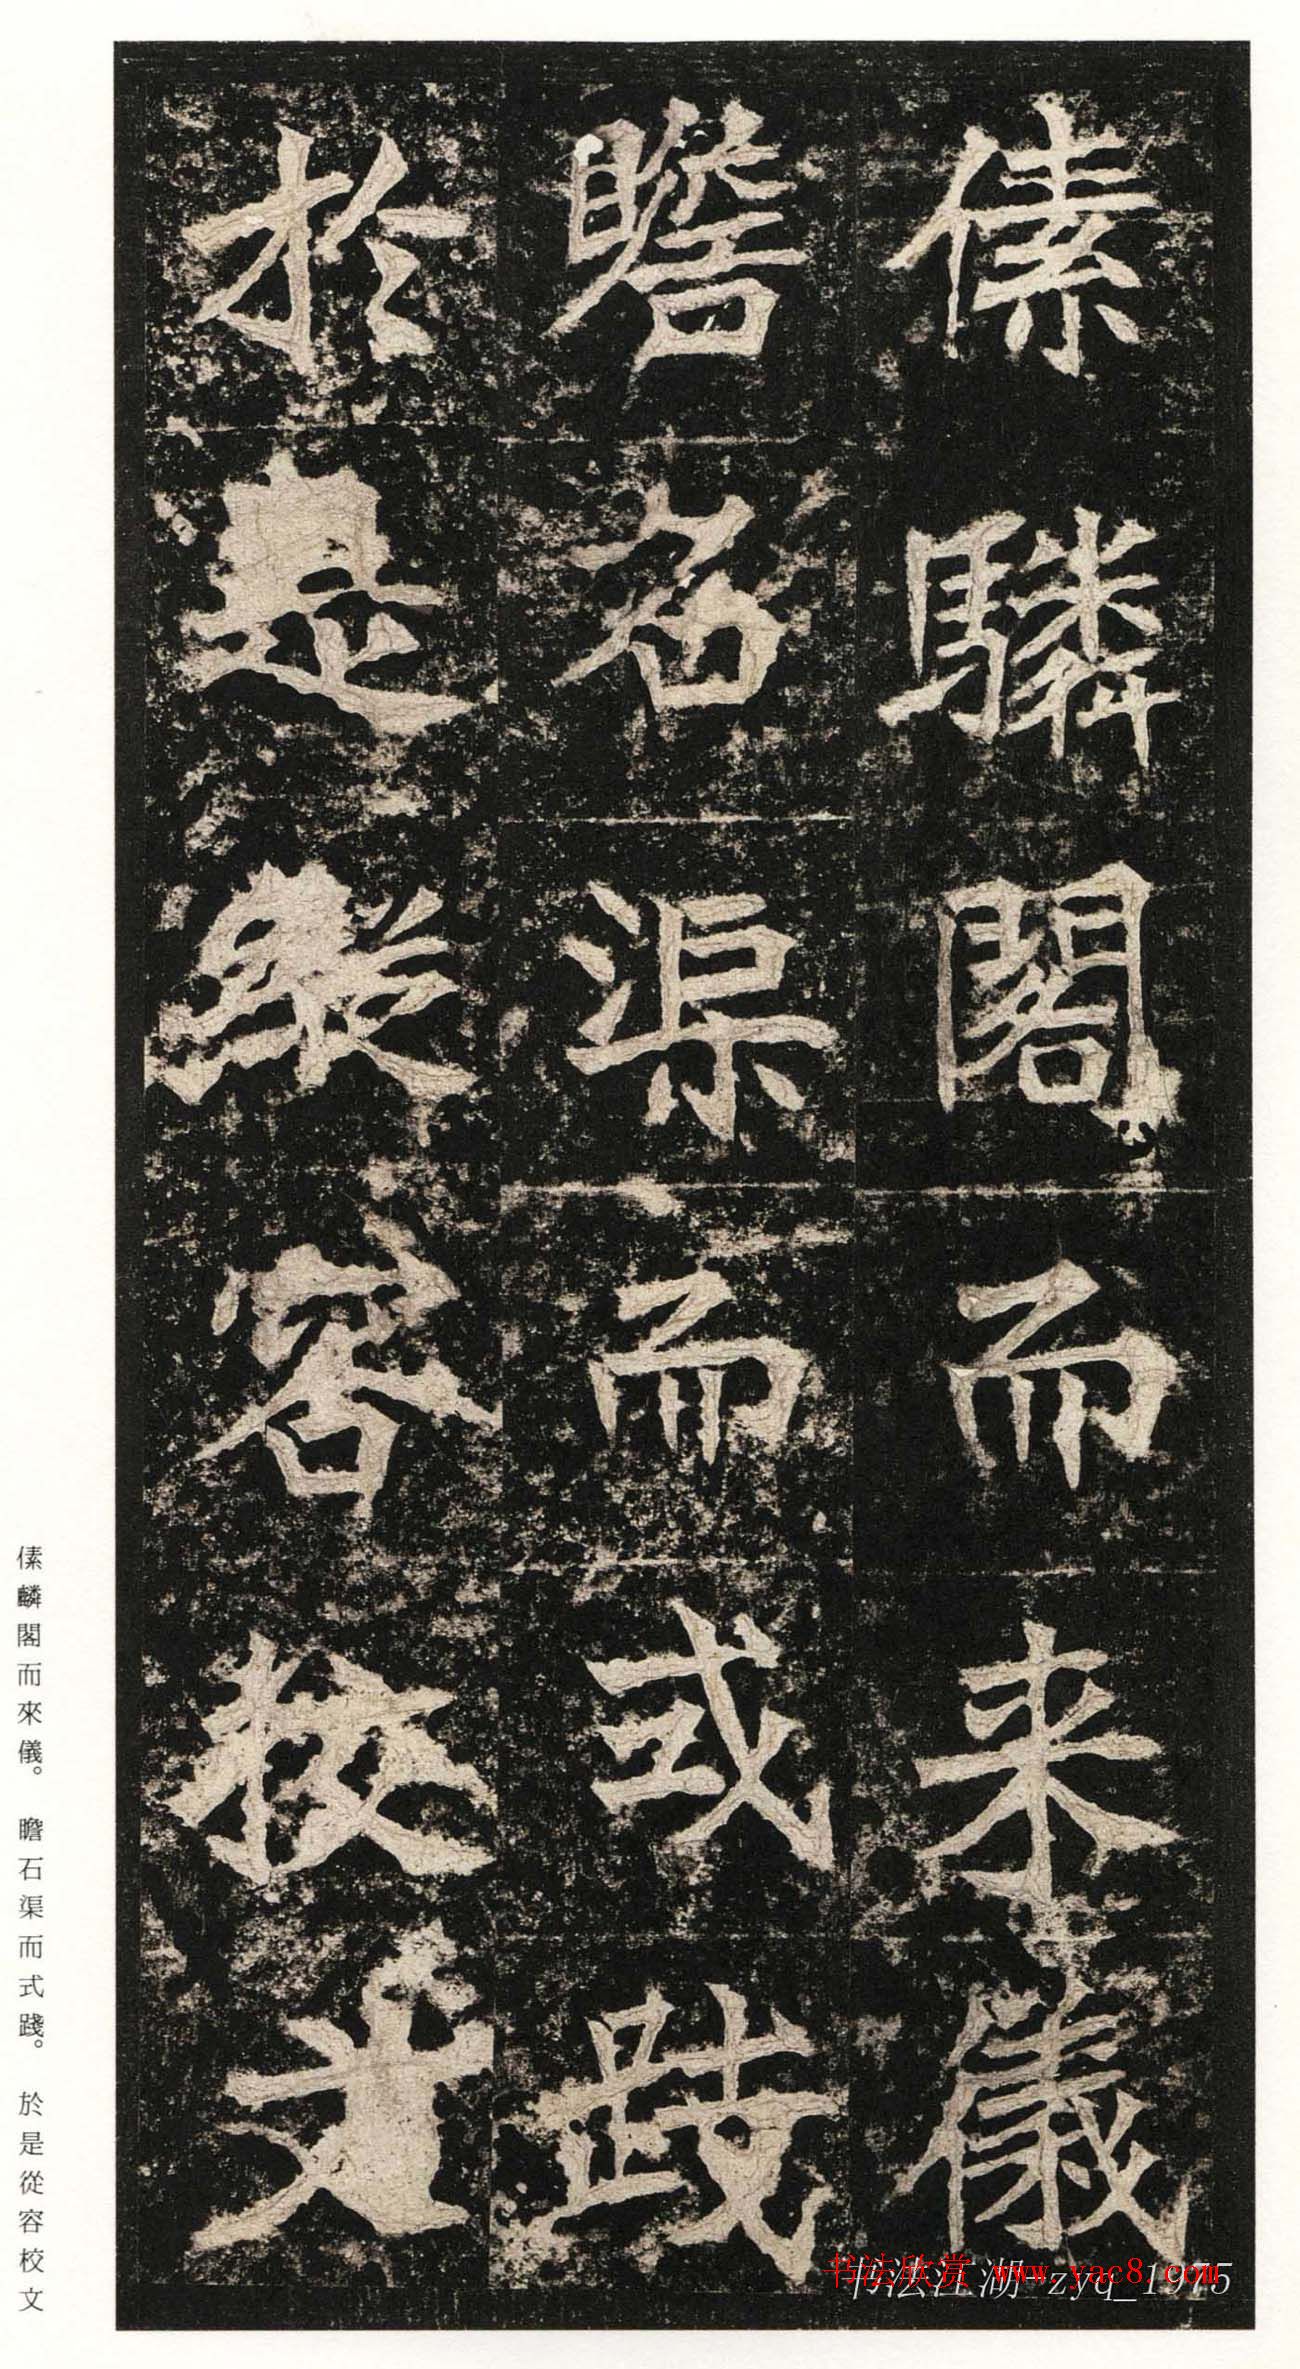 傃驎閣而来儀
瞻石渠而式踐
於是縱容校文
傃麟閣而來儀。瞻石渠而式踐。於是從容校文
书法江湖-zyq_1975
书法欣赏 www.yac8.com